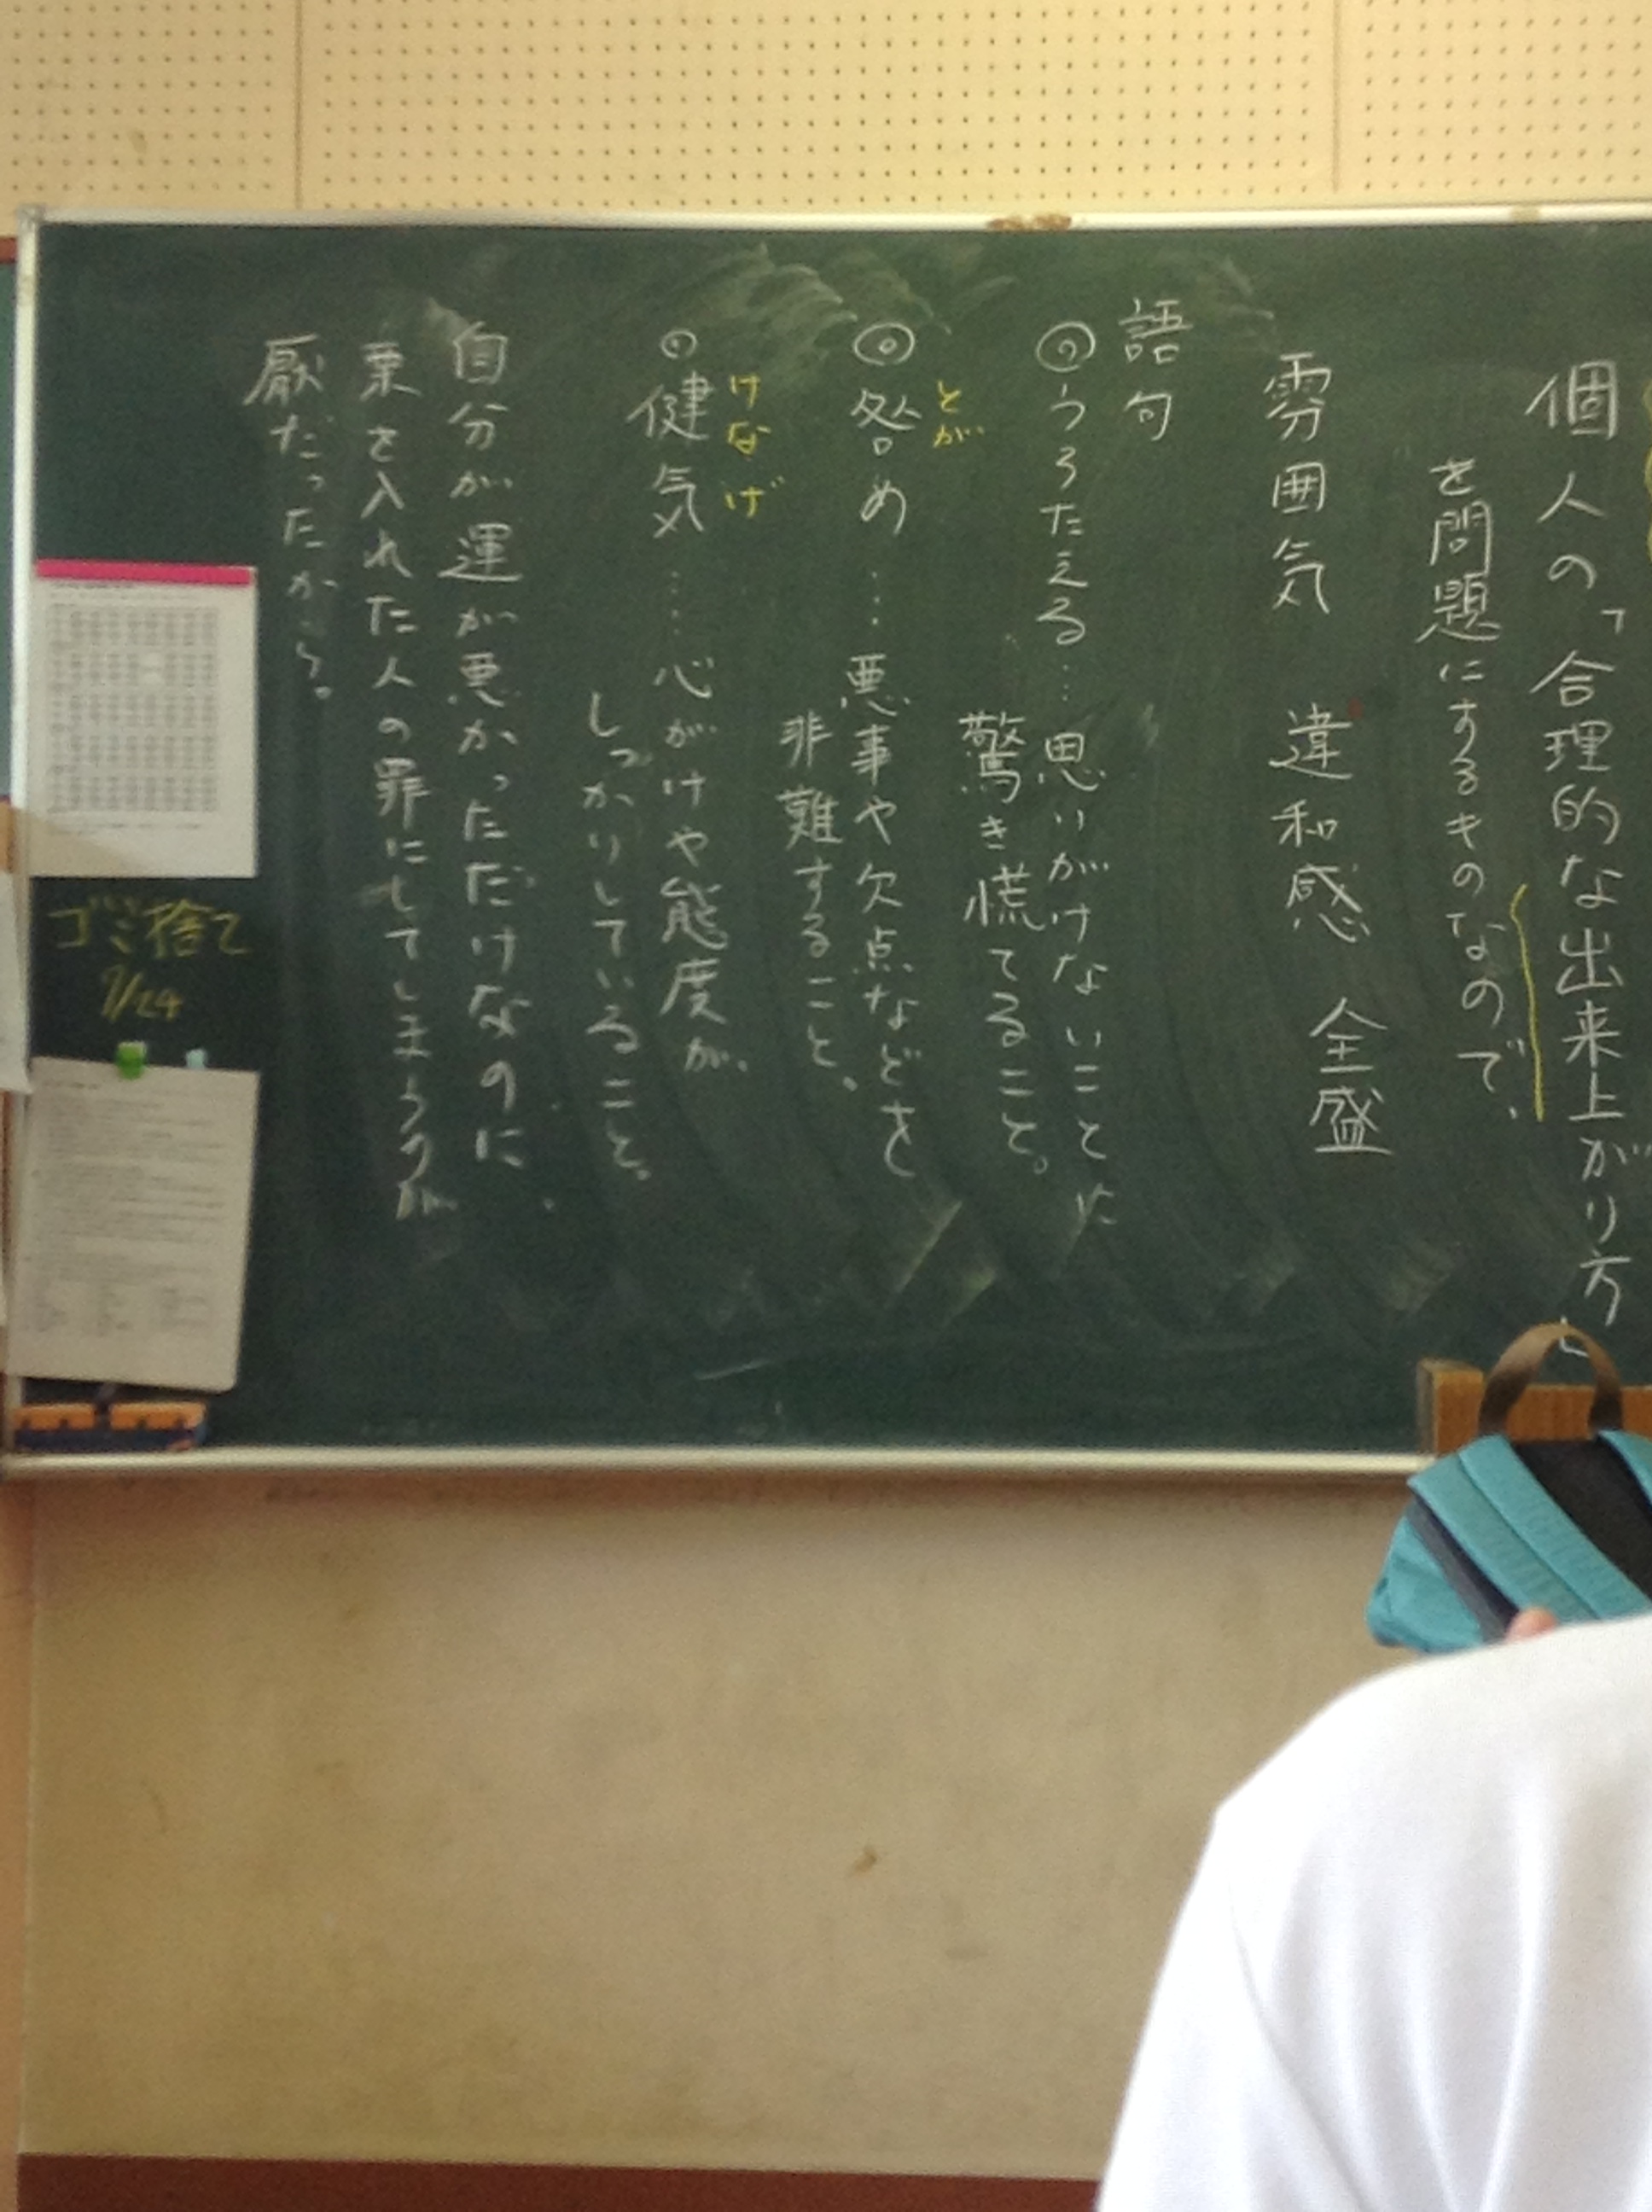 個人の「合理的な出来上がり方」
を問題にするものなので、
雰囲気 違和感 全盛
語句
うろたえる……思いがけないことに
驚き慌てること。
とが
咎め……悪事や欠点などを
非難すること。
けなげ
健気……心がけや態度が、
しっかりしていること。
自分が運が悪かっただけなのに、
栗を入れた人の罪にしてしまうのが
厭だったから。
ゴミ捨て
7/24